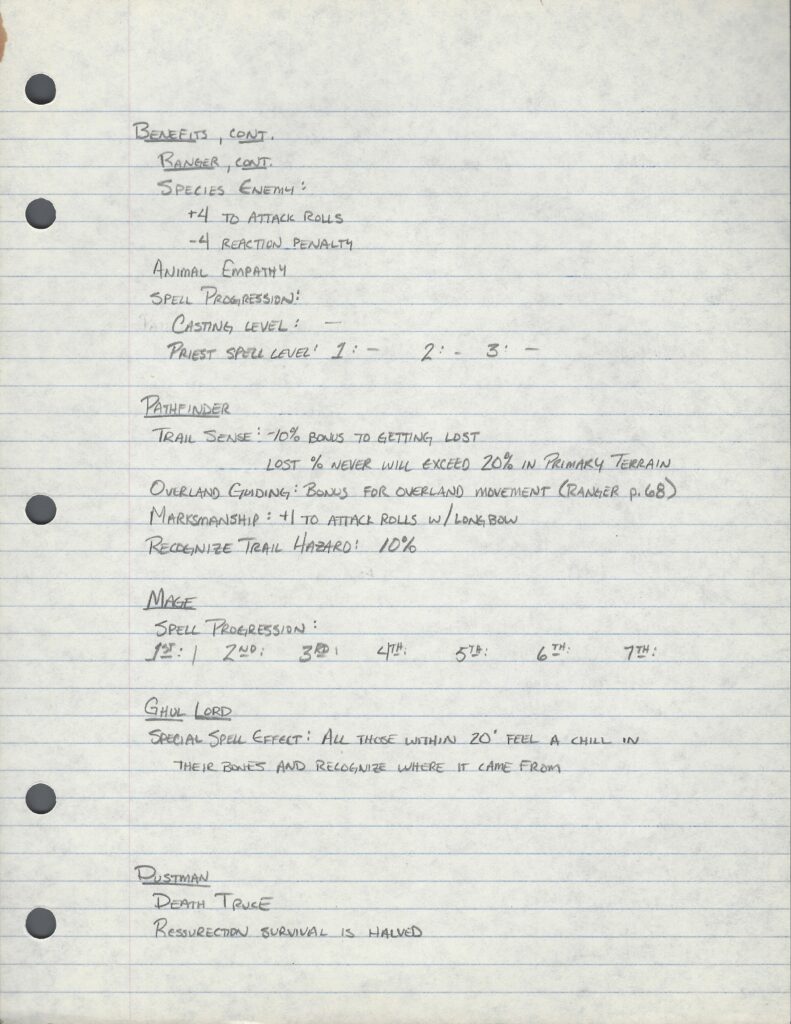 BENEFITS, CONT.
RANGER, CONT.
SPECIES ENEMY:
+4 TO ATTACK ROLLS
-4 REACTION PENALTY
ANIMAL EMPATHY
SPELL PROGRESSION:
CASTING LEVEL: —
PRIEST SPELL LEVEL: 1: – 2: - 3: –
PATHFINDER
TRAIL SENSE: -10% BONUS TO GETTING LOST
LOST % NEVER WILL EXCEED 20% IN PRIMARY TERRAIN
OVERLAND GUIDING: BONUS FOR OVERLAND MOVEMENT (RANGER p.68)
MARKSMANSHIP: +1 TO ATTACK ROLLS W/LONGBOW
RECOGNIZE TRAIL HAZARD: 10%
MAGE
SPELL PROGRESSION:
1ST: 1 2ND: 3RD: 4TH: 5TH: 6TH: 7TH:
GHUL LORD
SPECIAL SPELL EFFECT: ALL THOSE WITHIN 20' FEEL A CHILL IN
THEIR BONES AND RECOGNIZE WHERE IT CAME FROM
DUSTMAN
DEATH TRUCE
RESSURECTION SURVIVAL IS HALVED